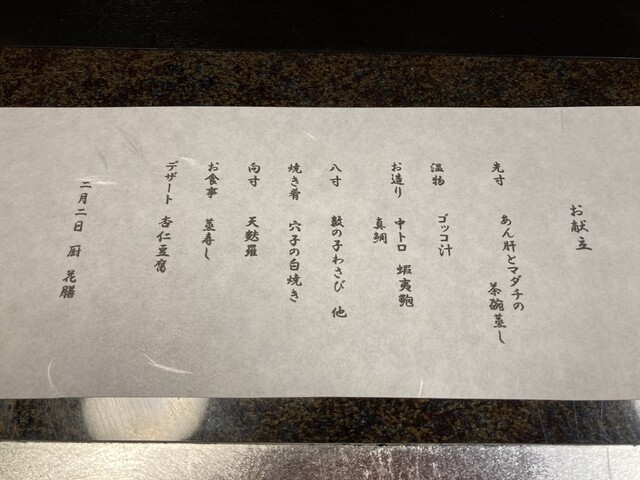 お献立
先寸 あん肝とマダチの
茶碗蒸し
温物 ゴッコ汁
お造り 中トロ 蝦夷鮑
真鯛
八寸 数の子わさび 他
焼き肴 穴子の白焼き
向寸 天麩羅
お食事 蒸寿し
デザート 杏仁豆腐
二月二日 厨 花膳